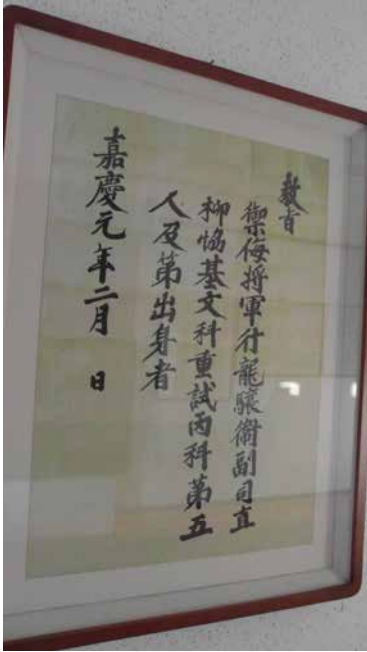 敎旨
禦侮將軍行龍驤衛副司直
柳協基文科重試丙科第五
人及第出身者
嘉慶元年二月 日